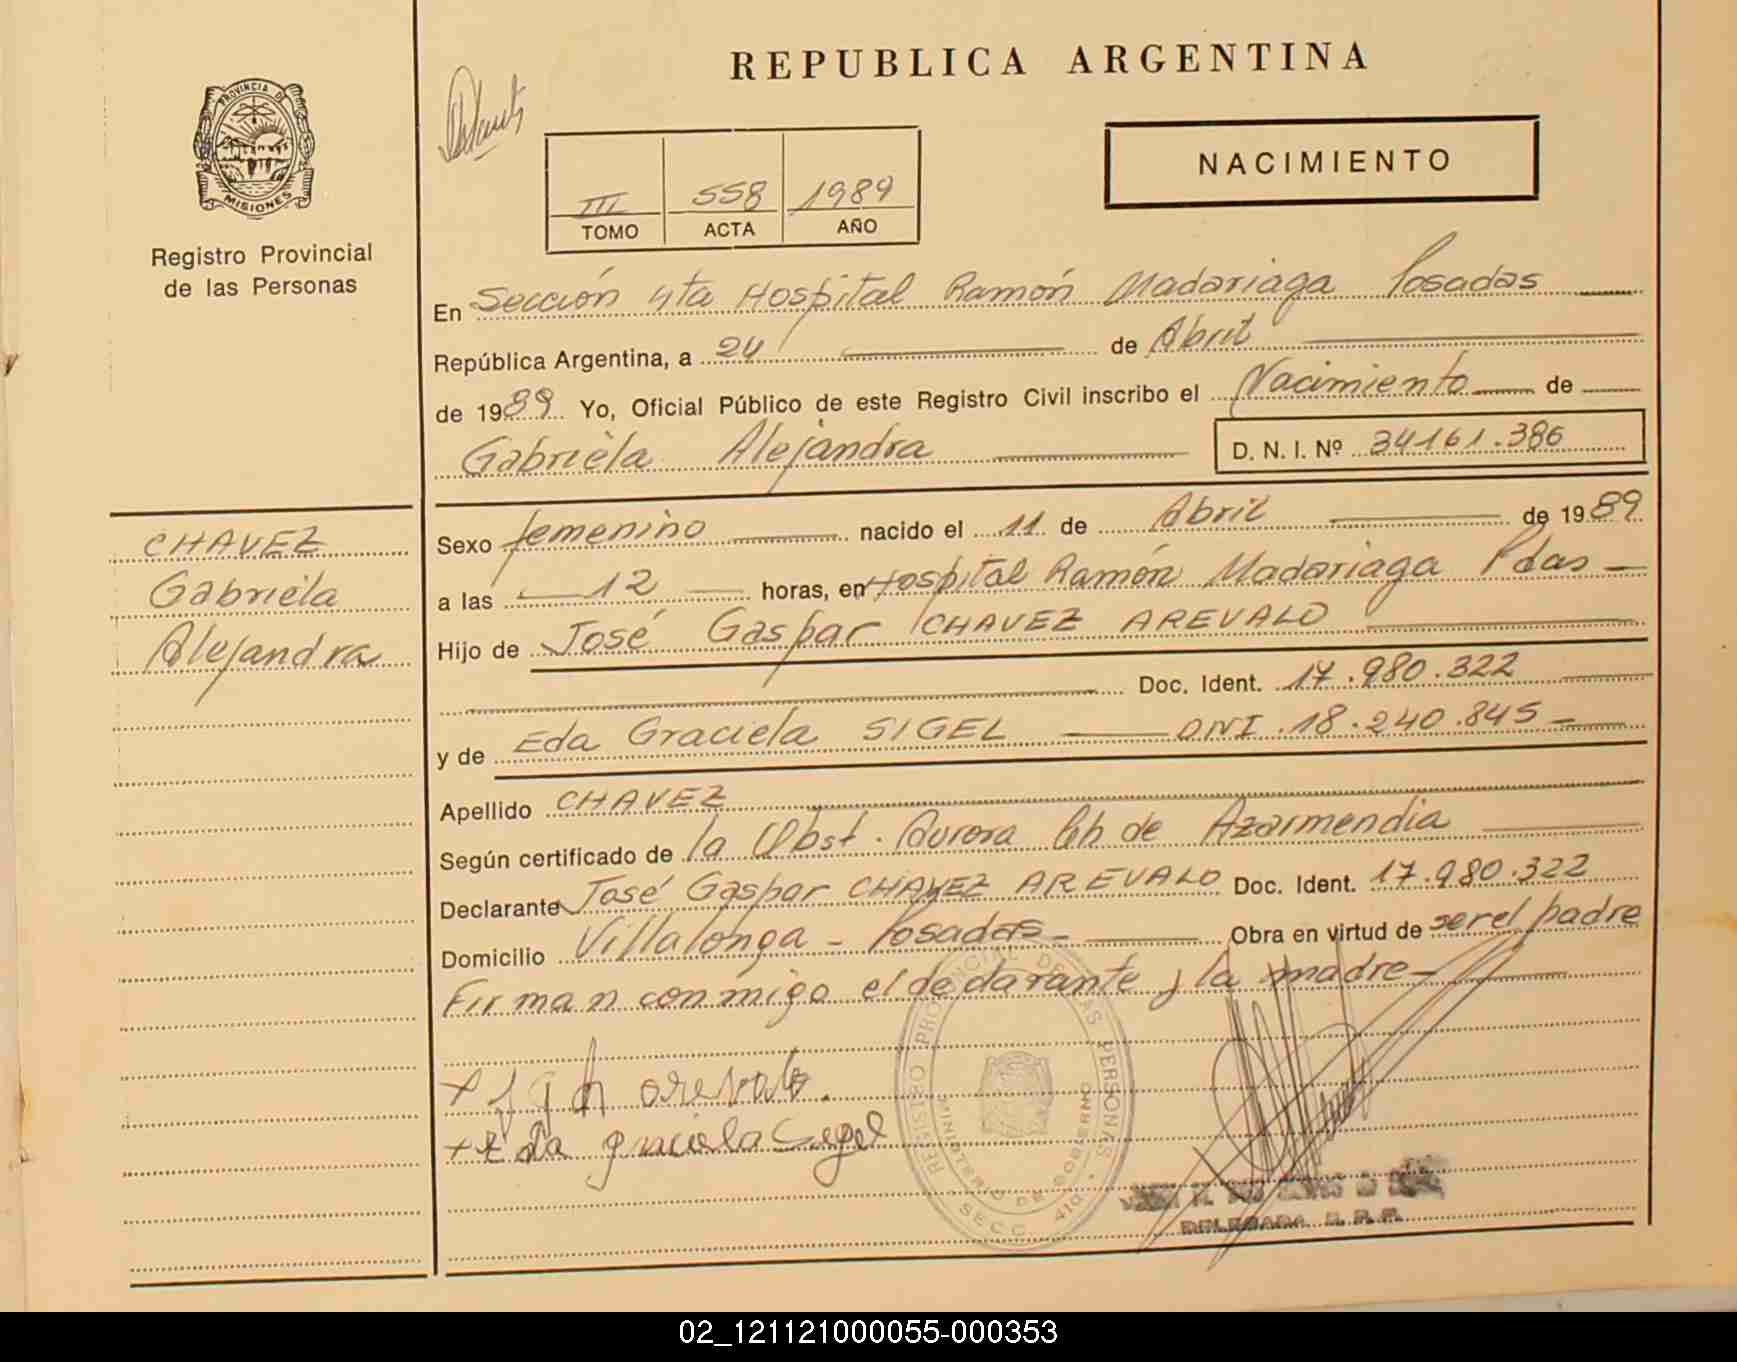 REPUBLICA ARGENTINA
NACIMIENTO
PROVINCIA DE
MISIONES
Registro Provincial
de las Personas
III 558 1989
TOMO ACTA AÑO
En Sección 4ta Hospital Ramón Madariaga Posadas
República Argentina, a 24 de Abril
de 1989 Yo, Oficial Público de este Registro Civil inscribo el Nacimiento de
Gabriela Alejandra D. N. I. Nº 34161.386
CHAVEZ
Gabriela
Alejandra
Sexo femenino nacido el 11 de Abril de 1989
a las 12 horas, en Hospital Ramón Madariaga Pdas
Hijo de José Gaspar CHAVEZ AREVALO
Doc. Ident. 17.980.322
y de Eda Graciela SIGEL DNI. 18.240.845
Apellido CHAVEZ
Según certificado de la Obst. Aurora de Azarmendia
Declarante José Gaspar CHAVEZ AREVALO Doc. Ident. 17.980.322
Domicilio Villalonga - Posadas - Obra en virtud de ser el padre
Firman conmigo el declarante y la madre
REGISTRO PROVINCIAL DE LAS PERSONAS
MINISTERIO DE GOBIERNO
SECC. 4ta
+ Eda graciela Segel
DELEGADA R. P. P.
02_121121000055-000353